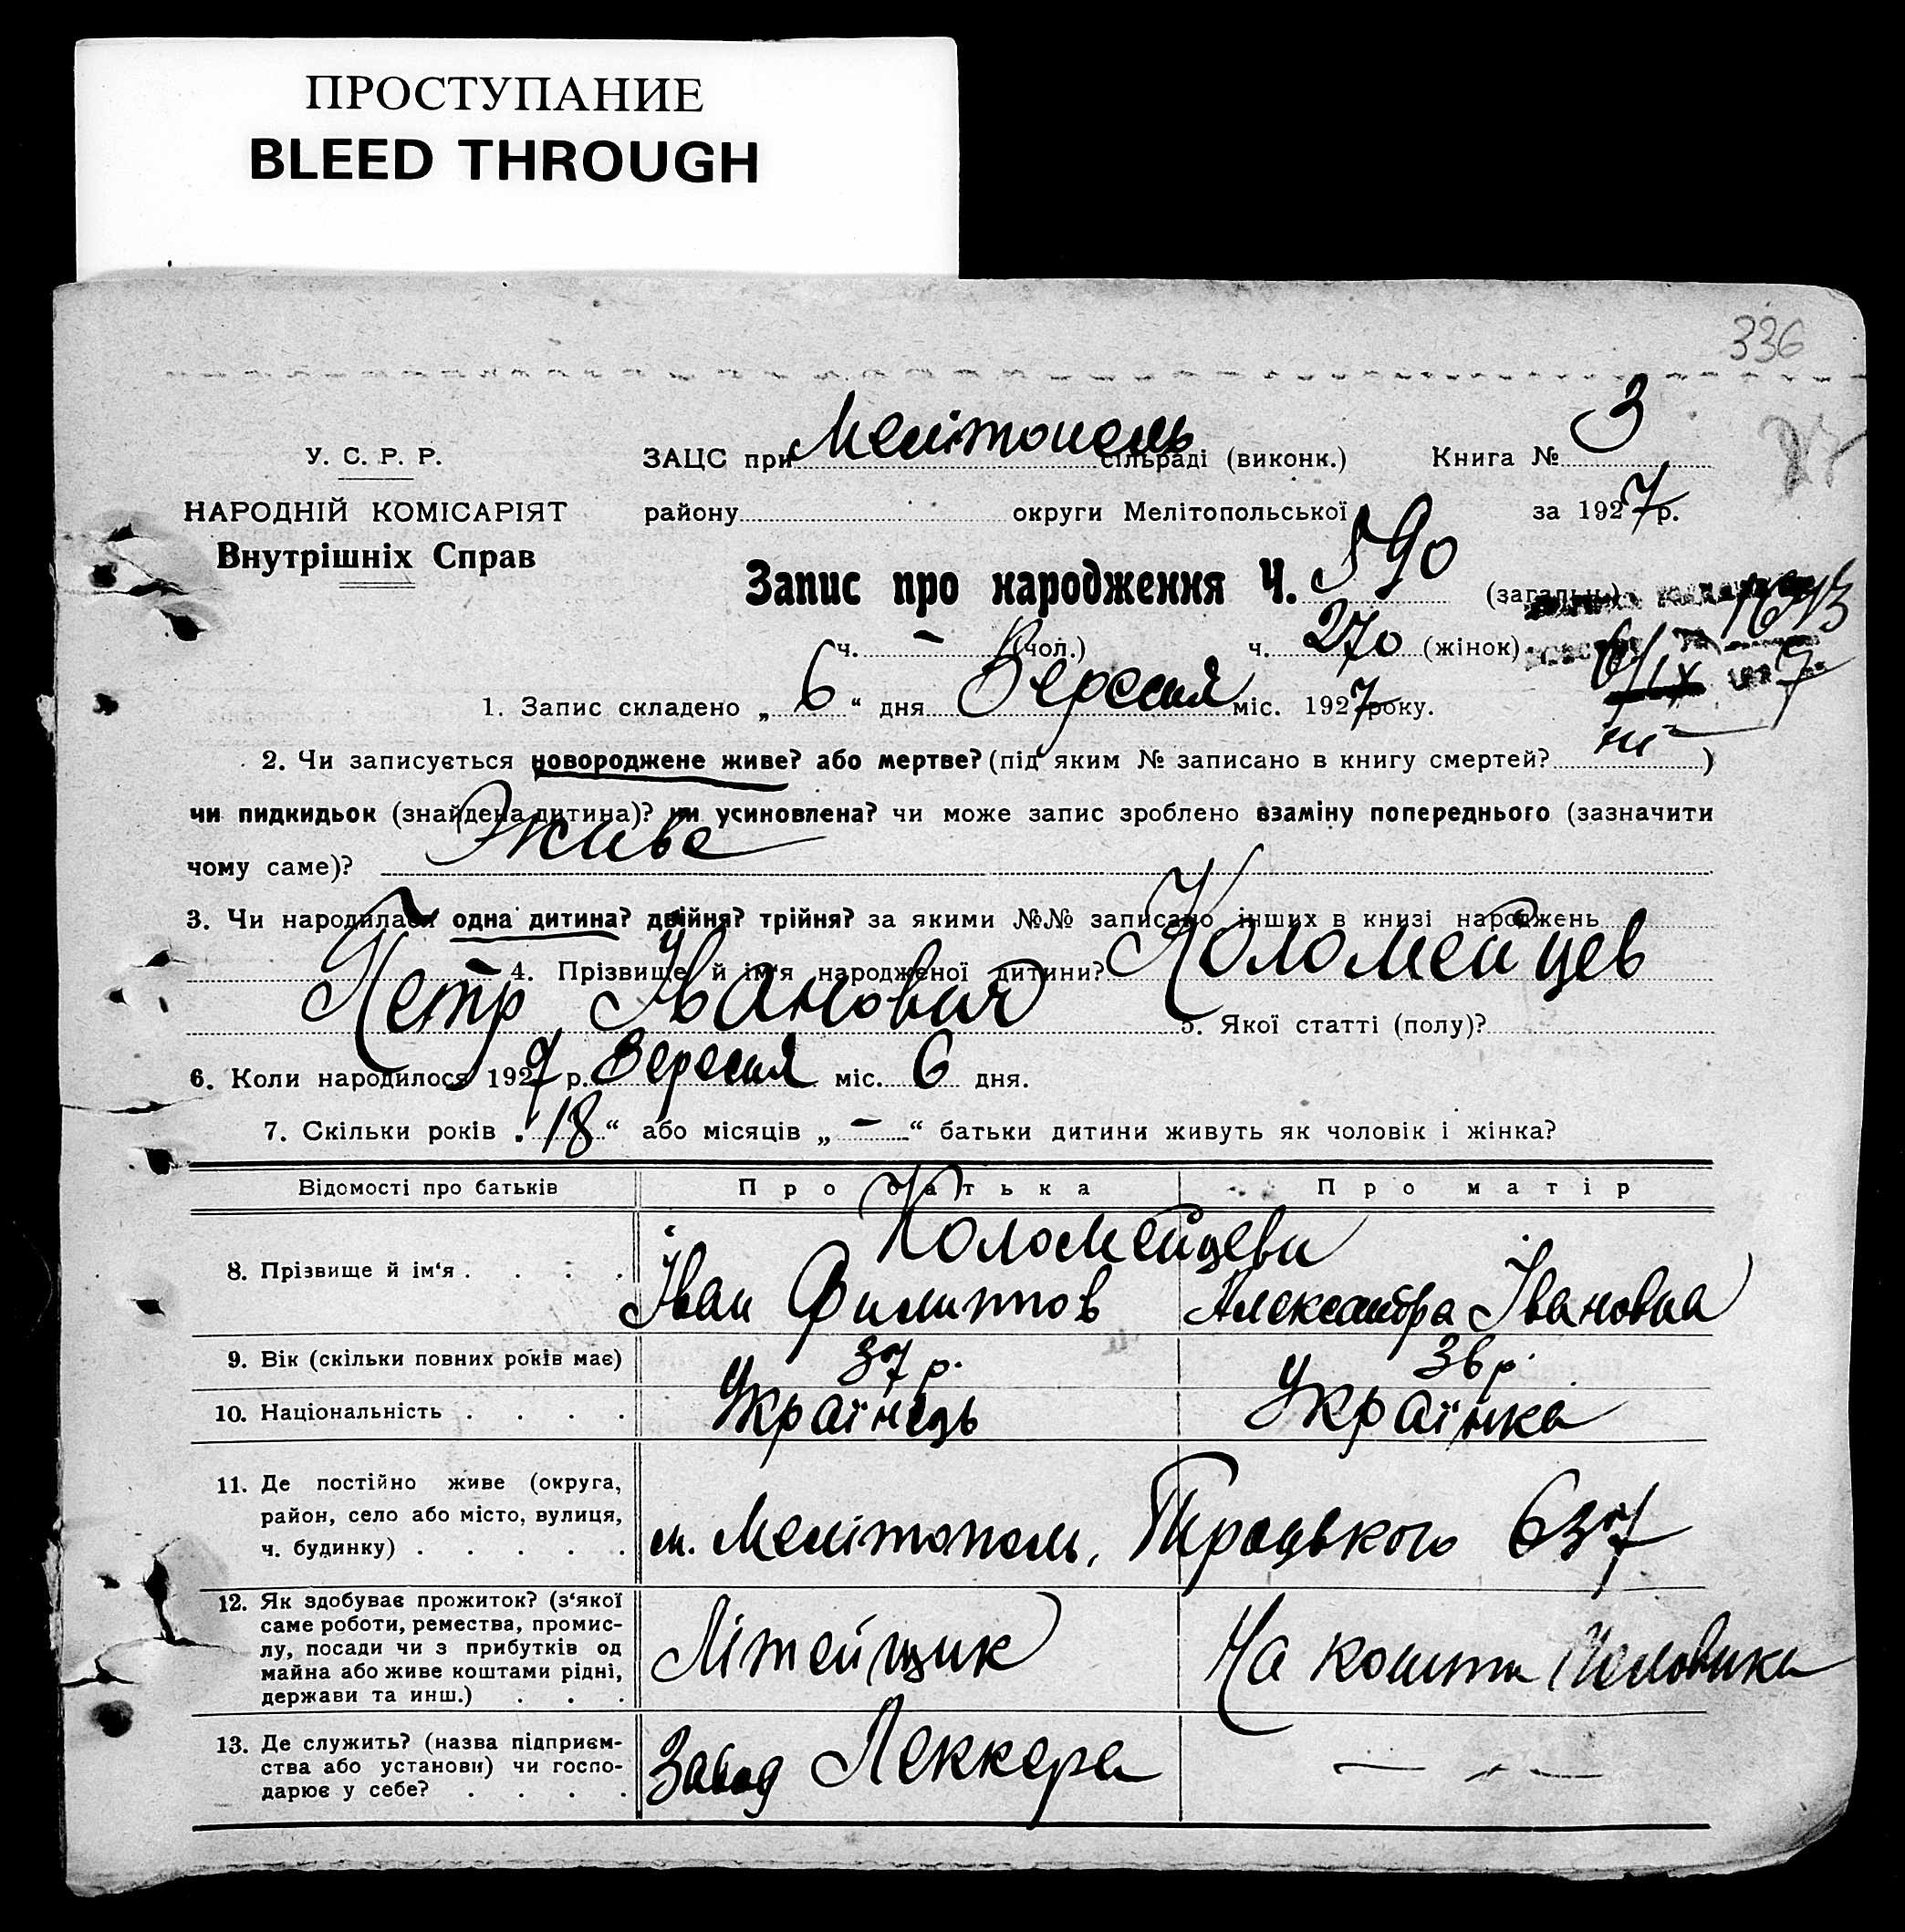 ПРОСТУПАНИЕ
BLEED THROUGH
336
27
У. С. Р. Р.
НАРОДНІЙ КОМІСАРІЯТ
Внутрішніх Справ
ЗАЦС при Мелітопель сільраді (виконк.) Книга № 3
району округи Мелітопольської за 1927 р.
Запис про народження Ч. 590 (загальн.)
ч. — (чол.) ч. 270 (жінок)
6/IX 7
1. Запис складено „ 6 “ дня Вересня міс. 1927 року.
2. Чи записується новороджене живе? або мертве? (під яким № записано в книгу смертей? ні )
чи пидкидьок (знайдена дитина)? чи усиновлена? чи може запис зроблено взаміну попереднього (зазначити
чому саме)? Живе
3. Чи народилася одна дитина? двійня? трійня? за якими №№ записано інших в книзі народжень
— 4. Прізвище й ім‘я народженої дитини? Коломейцев
Петр Іванович 5. Якої статті (полу)?
6. Коли народилося 1927 р. Вересня міс. 6 дня.
7. Скільки років „ 18 “ або місяців „ — “ батьки дитини живуть як чоловік і жінка?
Відомості про батьків Про батька Про матір
Коломейцеви
8. Прізвище й ім‘я . . . . Іван Филиппов Александра Івановна
9. Вік (скільки повних років має) 37 р. 36 р.
10. Національність . . . . Українець Українка
11. Де постійно живе (округа,
район, село або місто, вулиця,
ч. будинку) . . . . . м. Мелітополь, Троцького 637
12. Як здобуває прожиток? (з‘якої
саме роботи, ремества, промис-
лу, посади чи з прибутків од
майна або живе коштами рідні,
держави та инш.) . . . Літейщик На кошти Чоловика
13. Де служить? (назва підприєм-
ства або установи) чи госпо-
дарює у себе? . . . . Завод Леккера — „ —